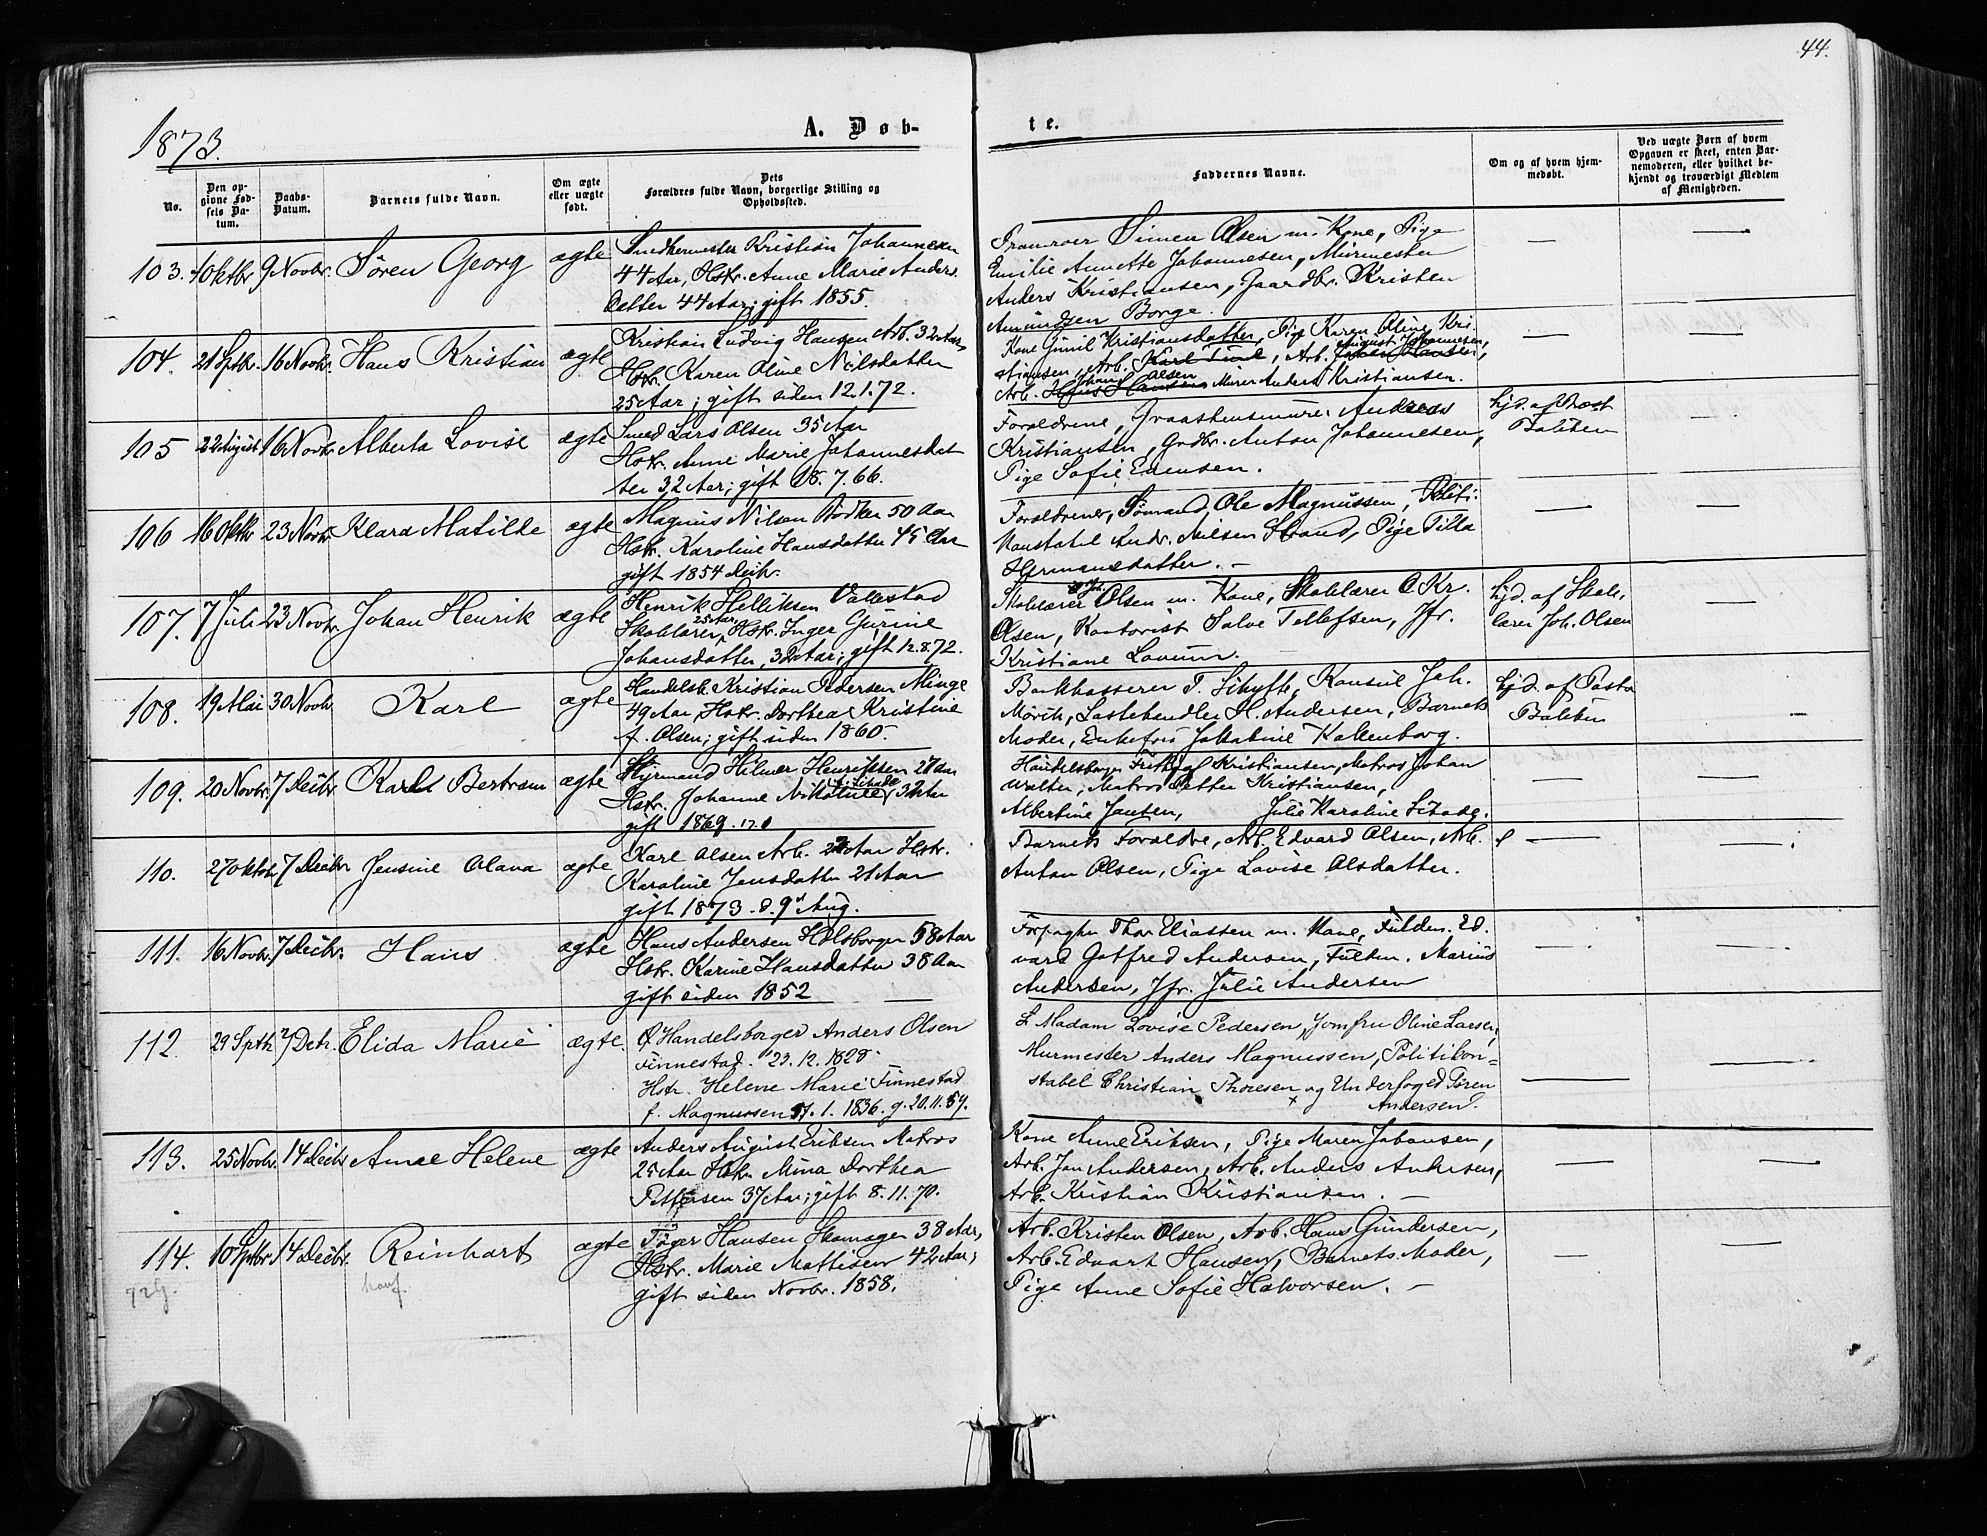 44.
1873.
A. Døb-
te.
No.
Den op-
givne Fød-
sels Da-
tum.
Daabs-
Datum.
Barnets fulde Navn.
Om ægte
eller uægte
født.
Dets
Forældres fulde Navn, borgerlige Stilling og
Opholdssted.
Faddernes Navne.
Om og af hvem hjem-
medøbt.
Ved uægte Børn af hvem
Opgaven er skeet, enten Bar-
nemoderen, eller hvilket be-
kjendt og troværdigt Medlem
af Menigheden.
103. 1 Oktbr 9 Novbr. Søren Georg ægte
Snedkermester Kristian Johannesen
44 Aar, Hstr. Anne Marie Anders
datter 44 Aar; gift 1855.
Pramroer Simen Olsen m. Kone, Pige
Emilie Annette Johannesen, Murmester
Anders Kristiansen, Gaardbr. Kristen
Amundsen Borge.
104. 21 Sptbr. 16 Novbr. Hans Kristian ægte
Kristian Ludvig Hansen Arb. 32 Aar,
Hstr. Karen Oline Nilsdatter
25 Aar; gift siden 12.1.72.
Kone Gunil Kristiansdatter, Pige Karen Oline Kri-
stiansen, Arb. , Arb. August Johannesen,
Arb. Johan Olsen, Murer Anders Kristiansen.
105 22 August 16 Novbr. Alberta Lovise ægte
Smed Lars Olsen 35 Aar
Hstr. Anne Marie Johannesdat
ter 32 Aar; gift 18.7.66.
Forældrene, Graastensmurer Andreas
Kristiansen, Grdbr. Anton Johannesen,
Pige Sofie Evensen.
hjd. af Past
Bakken
106 16 Oktbr 23 Novbr. Klara Matilde ægte
Magnus Nilsen Bødker 50 Aar
Hstr. Karoline Hansdatter 45 Aar
gift 1854 Decbr.
Forældrene, Sømand Ole Magnussen, Politi-
konstabel Andr. Nilsen Strand, Pige Tilla
Hermansdatter. —
107. 7 Juli 23 Novbr. Johan Henrik ægte
Henrik Helliksen Vallestad
Skolelærer, 25 Aar, Hstr. Inger Gurine
Johansdatter, 32 Aar; gift 12.8.72.
Skolelærer Joh. Olsen m. Kone, Skolelærer O Kr.
Olsen, Kontorist Salve Tellefsen, Jfr.
Kristiane Lovum.
hjd. af Skole-
lærer Joh. Olsen
108. 19 Mai 30 Novbr. Karl ægte
Handelsb. Kristian Pedersen Minge
49 Aar, Hstr. Dorthea Kristine
f. Olsen; gift siden 1860.
Bankkasserer T. Schytte, Konsul Joh.
Mørch, Lastehandler H. Andersen, Barnets
Moder, Enkefru Jakobine Kallenborg.
hjd. af Pastor
Bakken
109. 20 Novbr. 7 Decbr. Karl Bertram ægte
Styrmand Hilmer Henriksen 27 Aar
Hstr. Johanne Nikoline f. Schade 32 Aar
gift 1869.
Handelsborger Fritjof Kristiansen, Matros Johan
Walter, Matros Petter Kristiansen,
Albertine Jansen, Julie Karoline Schade.
110. 27 Oktbr 7 Decbr Jensine Olava ægte
Karl Olsen Arb. 22 Aar Hstr.
Karoline Jensdatter 21 Aar
gift 1873. d. 9d Aug.
Barnets Forældre, Arb. Edvard Olsen, Arb.
Anton Olsen, Pige Lovise Olsdatter.
111. 16 Novbr. 7 Decbr. Hans ægte
Hans Andersen Holsborgen 58 Aar
Hstr. Karine Hansdatter 38 Aar
gift siden 1852
Forpagter Thor Eliassen m. Kone, Fuldm. Ed-
vard Gotfred Andersen, Fuldm. Marius
Andersen, Jfr. Julie Andersen
112. 29 Sptbr. 7 Dcbr. Elida Marie ægte.
Handelsborger Anders Olsen
Finnestad. 23.12.1828.
Hstr. Helene Marie Finnestad
f. Magnussen 1. 1836. g. 20.11.59.
Madam Lovise Pedersen, Jomfru Oline Larsen,
Murmester Anders Magnussen, Politikon=
stabel Christian Thoresen og Underfoged Søren
Andersen.
113. 25 Novbr. 14 Decbr Anne Helene ægte
Anders August Eriksen Matros
25 Aar Hstr. Mina Dorthea
Pettersen 37 Aar; gift 8.11.70.
Kone Anne Eriksen, Pige Maren Johansen,
Arb. Jon Andersen, Arb. Anders Andersen,
Arb. Kristian Kristiansen. —
114. 10 Sptbr 14 Decbr. Reinhart ægte
Hansen Skomager 38 Aar,
Hstr. Marie Mattisen 42 Aar;
gift siden Novbr. 1858.
Arb. Kristen Olsen, Arb. Hans Gundersen,
Arb. Edvart Hansen, Barnets Moder,
Pige Anne Sofie Halvorsen. —